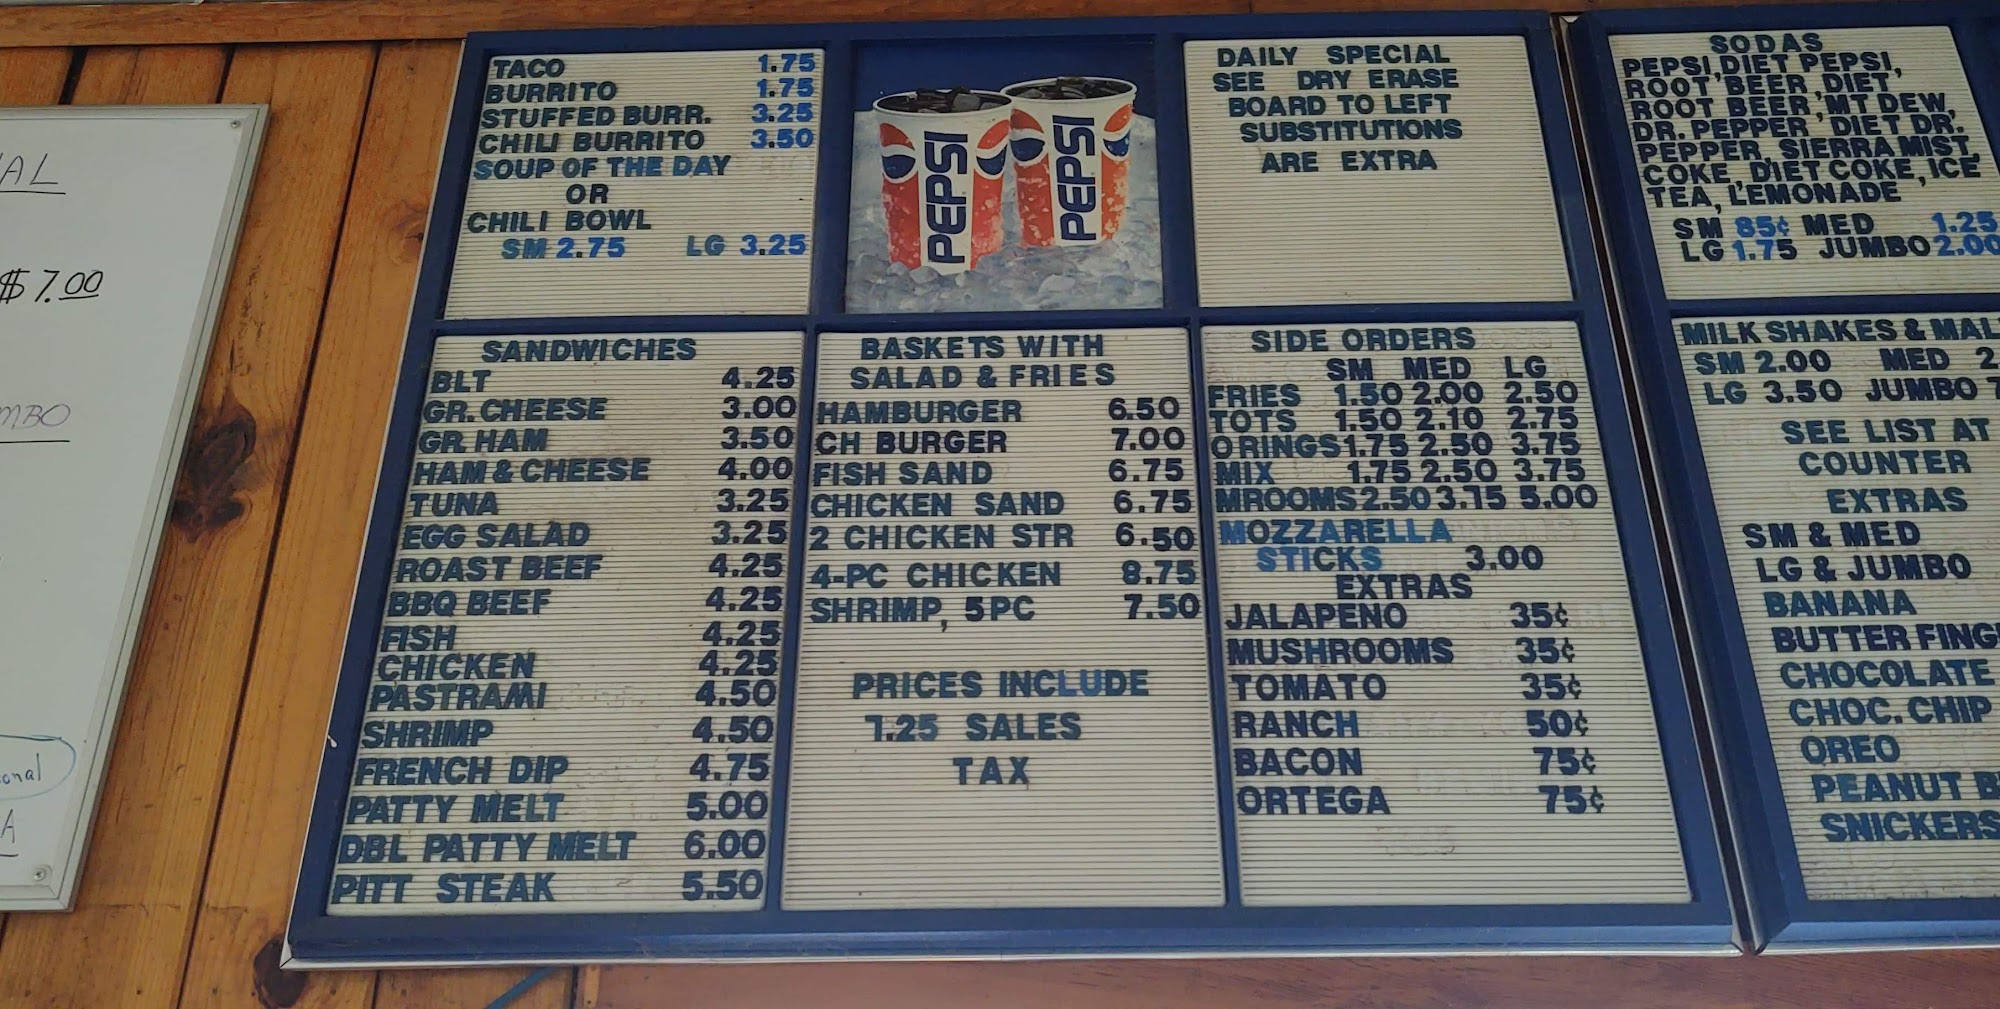 AL
$7.00
MBO
onal
A
TACO 1.75
BURRITO 1.75
STUFFED BURR. 3.25
CHILI BURRITO 3.50
SOUP OF THE DAY
OR
CHILI BOWL
SM 2.75 LG 3.25
PEPSI PEPSI
DAILY SPECIAL
SEE DRY ERASE
BOARD TO LEFT
SUBSTITUTIONS
ARE EXTRA
SANDWICHES
BLT 4.25
GR. CHEESE 3.00
GR. HAM 3.50
HAM & CHEESE 4.00
TUNA 3.25
EGG SALAD 3.25
ROAST BEEF 4.25
BBQ BEEF 4.25
FISH 4.25
CHICKEN 4.25
PASTRAMI 4.50
SHRIMP 4.50
FRENCH DIP 4.75
PATTY MELT 5.00
DBL PATTY MELT 6.00
PITT STEAK 5.50
BASKETS WITH
SALAD & FRIES
HAMBURGER 6.50
CH BURGER 7.00
FISH SAND 6.75
CHICKEN SAND 6.75
2 CHICKEN STR 6.50
4-PC CHICKEN 8.75
SHRIMP, 5PC 7.50
PRICES INCLUDE
7.25 SALES
TAX
SIDE ORDERS
SM MED LG
FRIES 1.50 2.00 2.50
TOTS 1.50 2.10 2.75
O RINGS 1.75 2.50 3.75
MIX 1.75 2.50 3.75
MROOMS 2.50 3.75 5.00
MOZZARELLA
STICKS 3.00
EXTRAS
JALAPENO 35¢
MUSHROOMS 35¢
TOMATO 35¢
RANCH 50¢
BACON 75¢
ORTEGA 75¢
SODAS
PEPSI, DIET PEPSI,
ROOT BEER, DIET
ROOT BEER, MT DEW,
DR. PEPPER, DIET DR.
PEPPER, SIERRA MIST,
COKE, DIET COKE, ICE
TEA, LEMONADE
SM 85¢ MED 1.25
LG 1.75 JUMBO 2.00
MILK SHAKES & MAL
SM 2.00 MED 2.
LG 3.50 JUMBO
SEE LIST AT
COUNTER
EXTRAS
SM & MED
LG & JUMBO
BANANA
BUTTER FING
CHOCOLATE
CHOC. CHIP
OREO
PEANUT B
SNICKERS